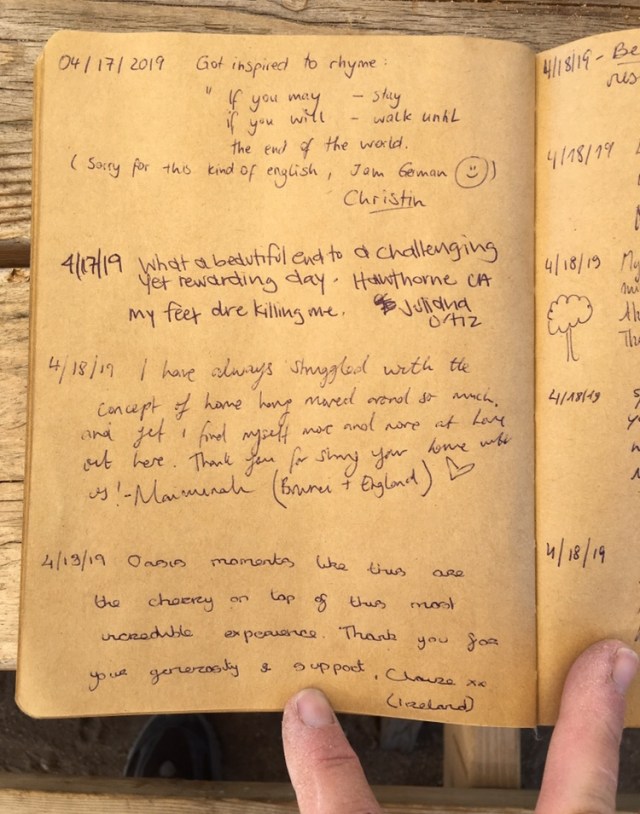 04/17/2019 Got inspired to rhyme:
" If you may - stay
if you will - walk until
the end of the world.
( Sorry for this kind of english, Jam German ☺)
Christin
4/17/19 What a beautiful end to a challenging
yet rewarding day. Hawthorne CA
my feet are killing me. Juliana
Ortiz
4/18/19 I have always struggled with the
concept of home having moved around so much.
and yet I find myself more and more at home
out here. Thank you for sharing your home with
us! - Maimunah (Brunei + England) ♡
4/13/19 Oasis moments like this are
the cherry on top of this most
incredible experience. Thank you for
your generosity & support.
xx
(Ireland)
4/18/19 - Be
res
4/18/19
4/18/19 My
mi
th
Th
4/18/19
4/18/19